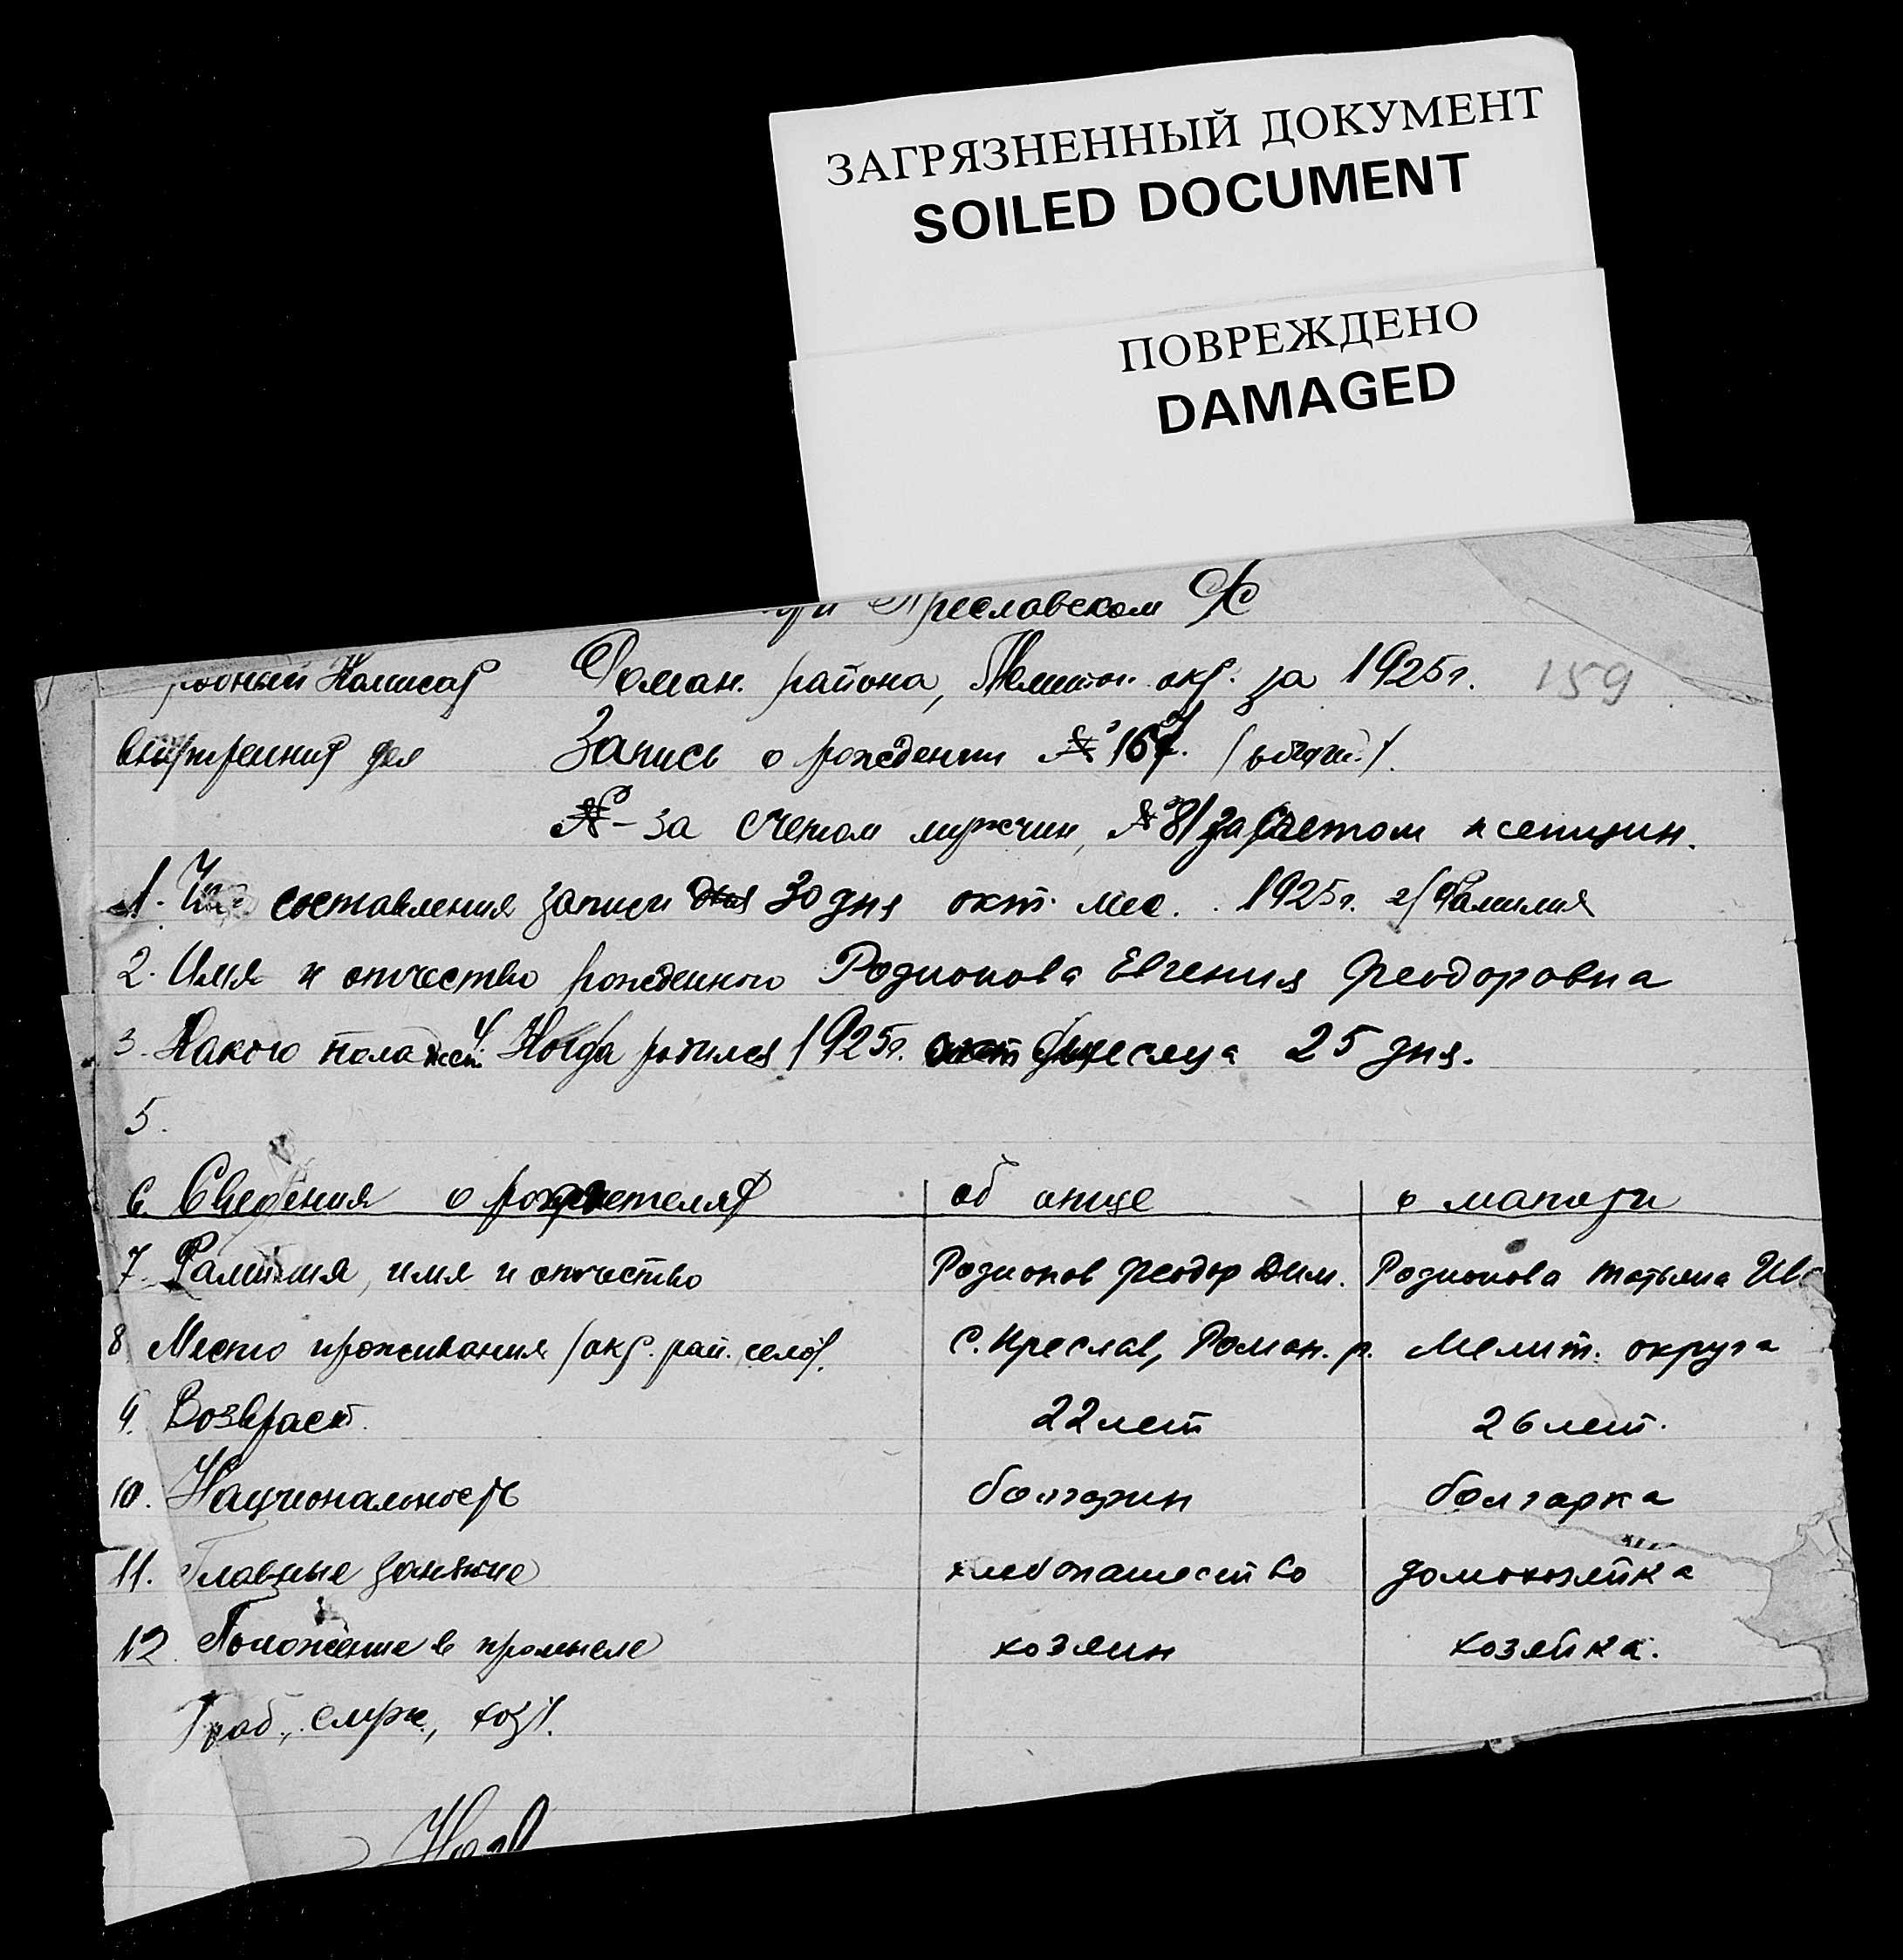 ЗАГРЯЗНЕННЫЙ ДОКУМЕНТ
SOILED DOCUMENT
ПОВРЕЖДЕНО
DAMAGED
Преславском
родный Комисар Роман. района, Мелитоп. окр. за 1925г. 159
внутренних дел Запись о рождении № 167.
№ - за счетом мужчин, № 81 за счетом женщин.
1. составления записи 30 дня окт. мес. 1925г. 2/ Фамилия
2. Имя и отчество рожденного Родионова Евгения Феодоровна
3. Какого пола жен. 4 Когда родился 1925г. окт месяца 25 дня.
5.
6. Сведения о родителях об отце о матери
7. Фамилия, имя и отчество Родионов Феодор Дим. Родионова Татьяна Ив
8. Место проживания /окр. рай. село/. С. Преслав, Роман. р. Мелит. округа
9. Возраст. 22 лет 26 лет.
10. Национальность болгарин болгарка
11. Главные занятие хлебопашество домохозяйка
12. Положение в промысле хозяин хозяйка.
раб., служ., хоз/.